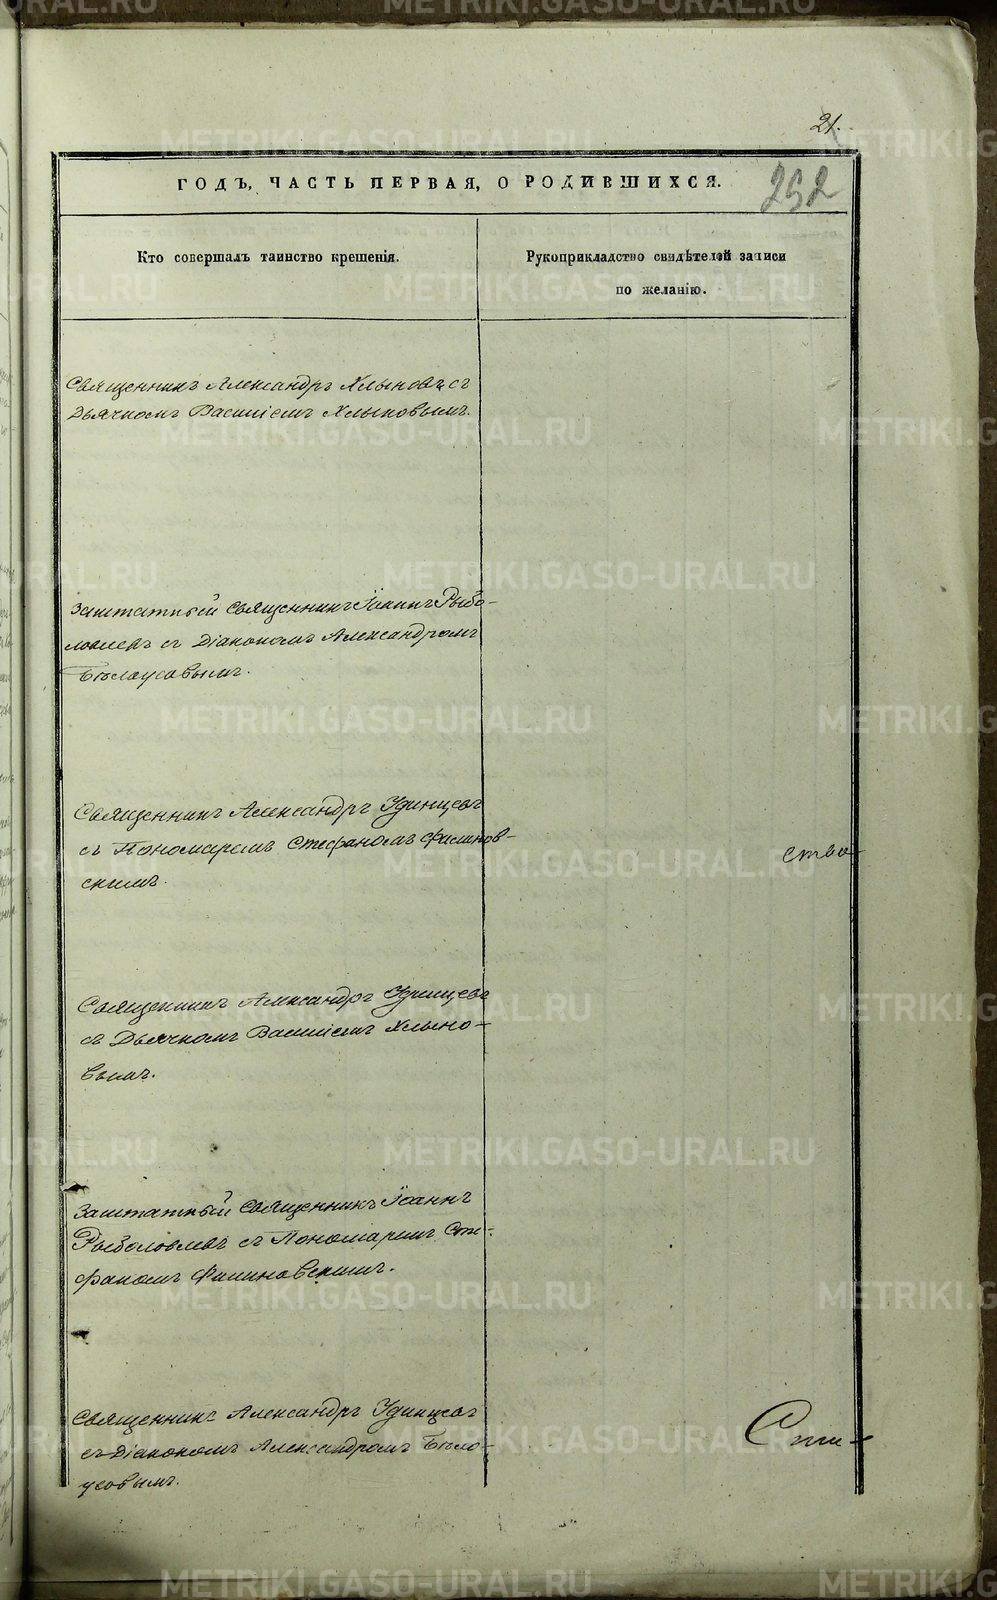 21.
ГОДЪ, ЧАСТЬ ПЕРВАЯ, О РОДИВШИХСЯ.
252
Кто совершалъ таинство крещенія.
Рукоприкладство свидѣтелей записи
по желанію.
Священникъ Александръ Хлыновъ съ
Дьячкомъ Василіемъ Хлыновымъ.
Заштатный Священникъ Іоаннъ Рыбо-
ловлевъ съ Діакономъ Александромъ
Бѣлоусовымъ.
Священникъ Александръ Удинцевъ
съ Пономаремъ Стефаномъ Филинов-
скимъ.
ства
Священникъ Александръ Удинцевъ
съ Дьячкомъ Василіемъ Хлыно-
вымъ.
Заштатный Священникъ Іоаннъ
Рыболовлевъ съ Пономаремъ Сте-
фаномъ Филиновскимъ.
Священникъ Александръ Удинцевъ
съ Діакономъ Александромъ Бѣло-
усовымъ.
METRIKI.GASO-URAL.RU